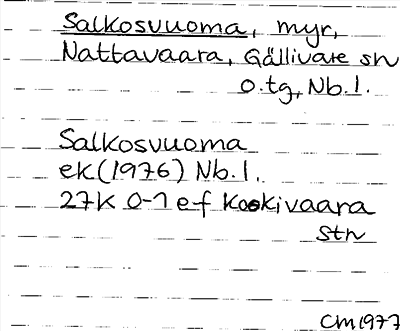 Salkosvuoma, myr,
Nattavaara, Gällivare sn
o.tg, Nb.l.
Salkosvuoma
ek(1976) Nb.l.
27K 0-1 e-f Koskivaara
stn
CM1977